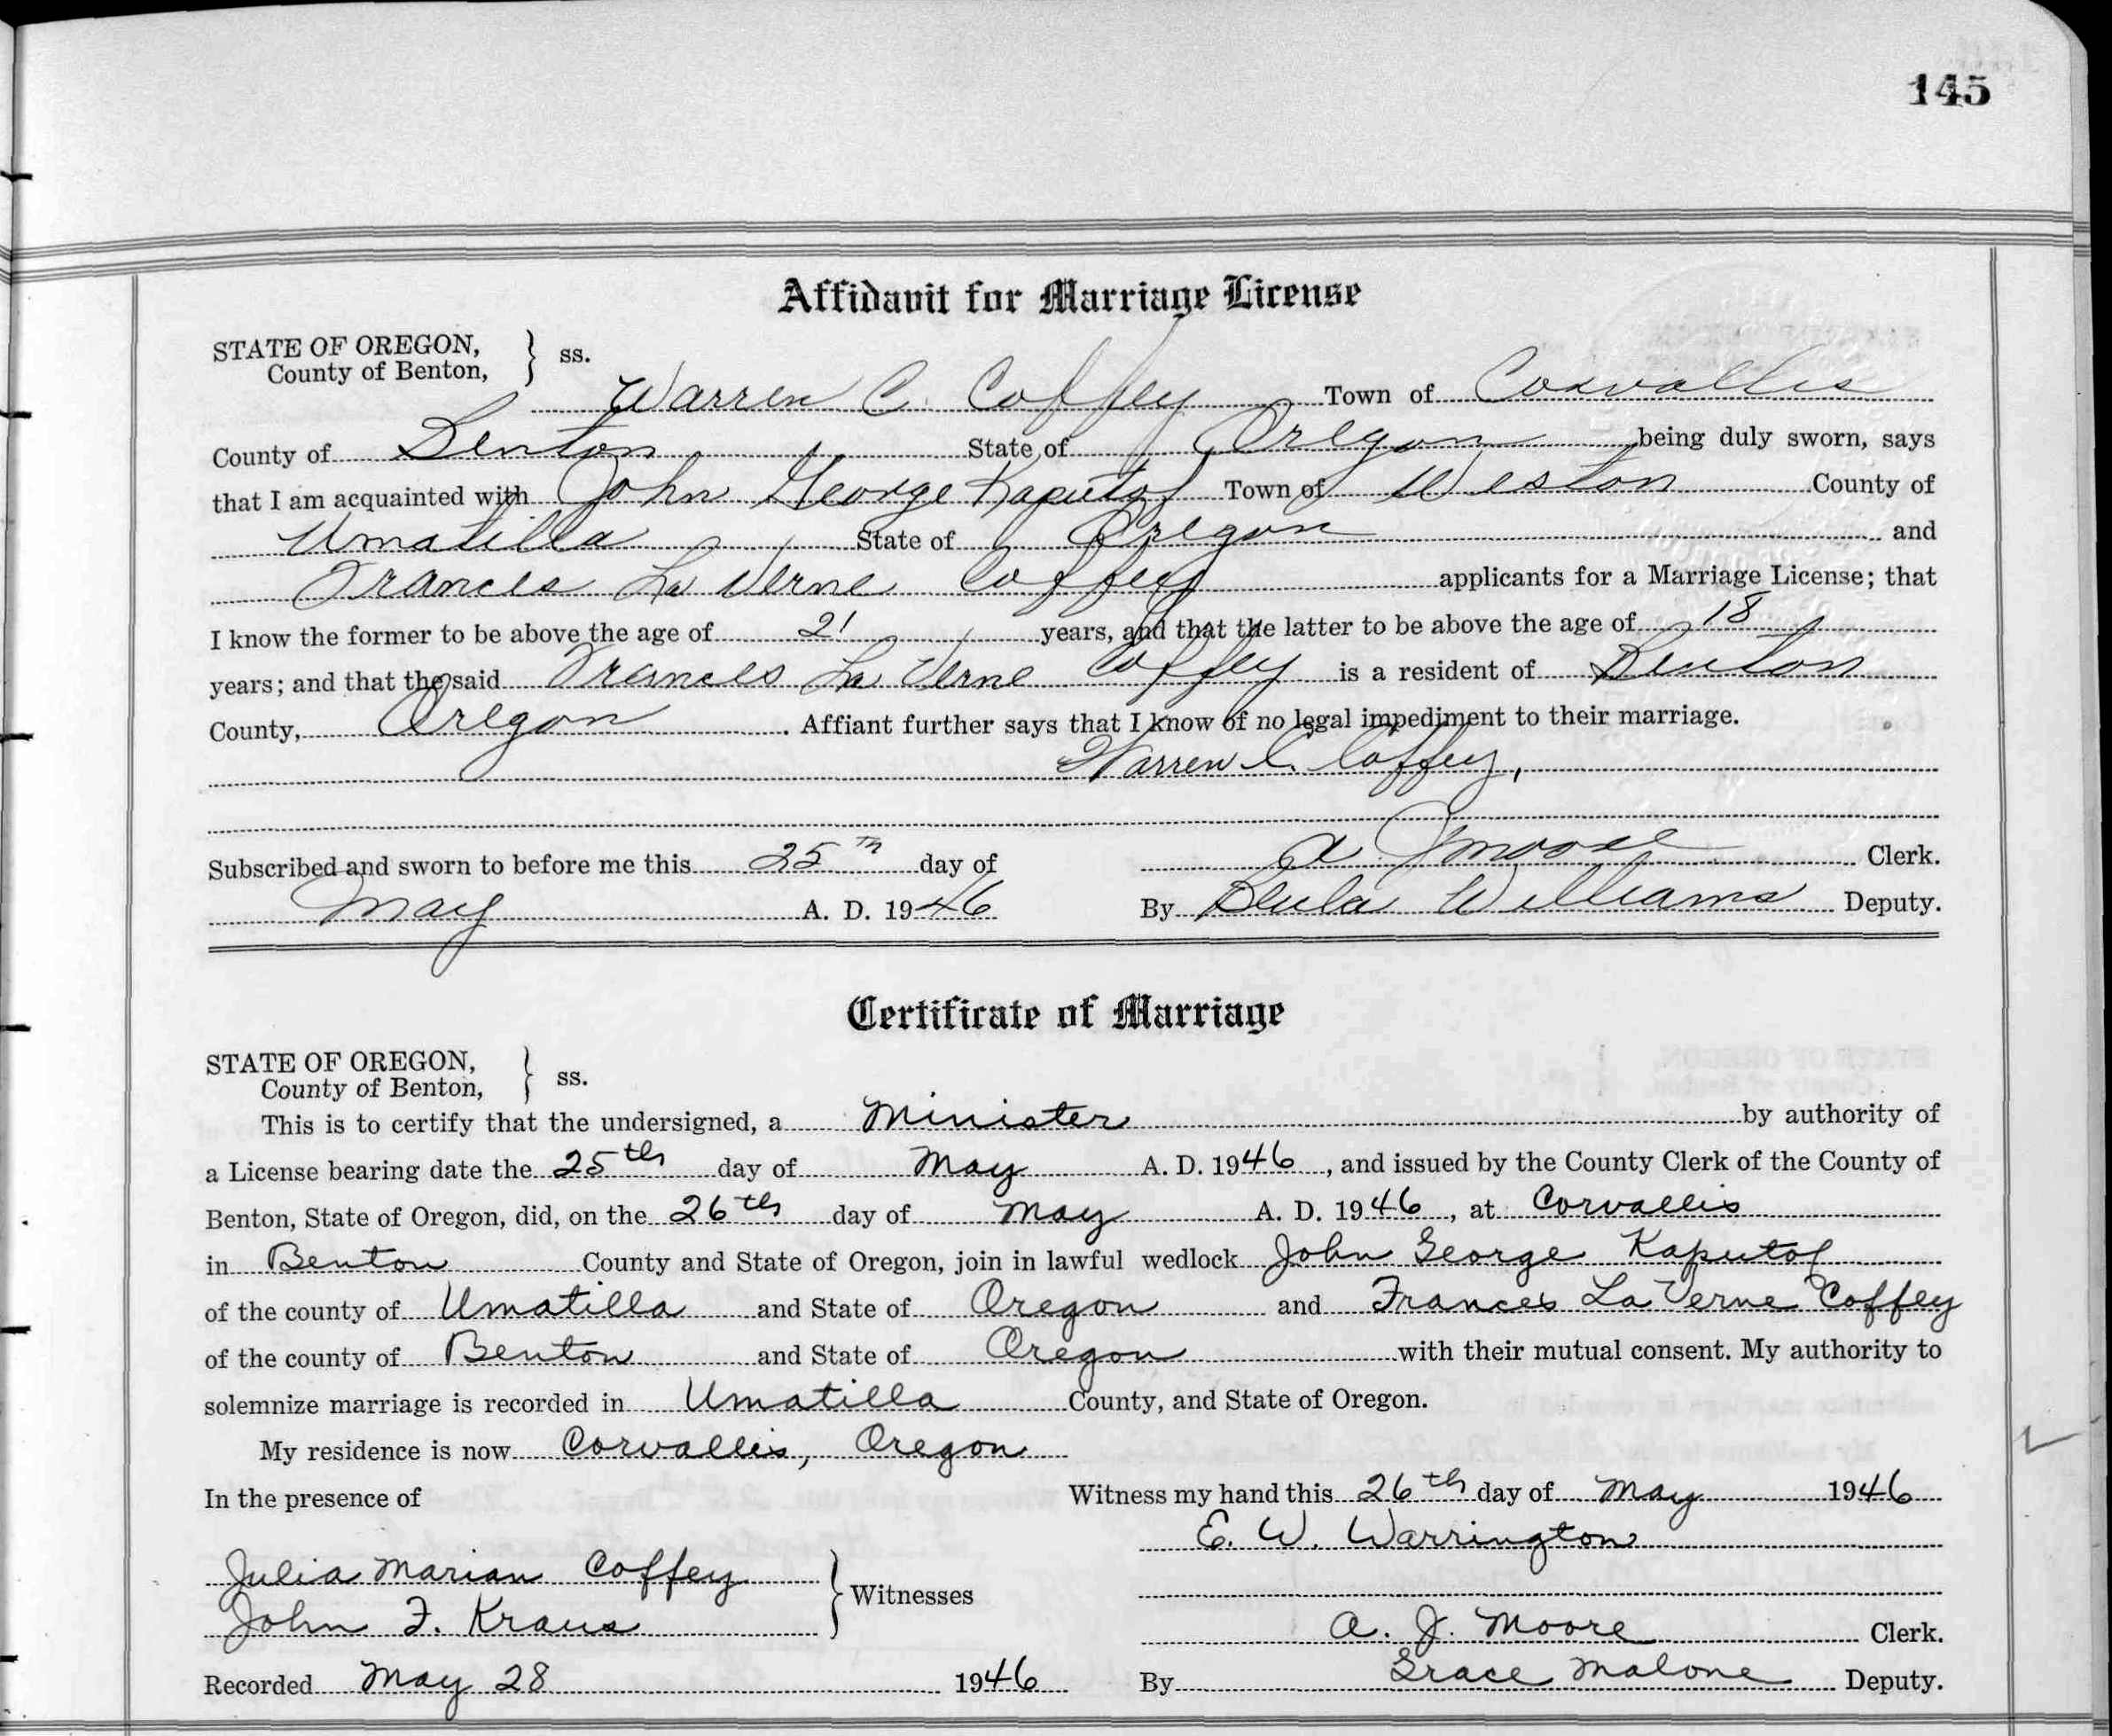 145
Affidavit for Marriage License
STATE OF OREGON,
County of Benton, } ss.
Warren C. Coffey Town of Corvallis
County of Benton State of Oregon being duly sworn, says
that I am acquainted with John George Kaputof Town of Weston County of
Umatilla State of Oregon and
Frances La Verne Coffey applicants for a Marriage License; that
I know the former to be above the age of 21 years, and that the latter to be above the age of 18
years; and that the said Frances La Verne Coffey is a resident of Benton
County, Oregon. Affiant further says that I know of no legal impediment to their marriage.
Warren C. Coffey,
Subscribed and sworn to before me this 25th day of A J Moore Clerk.
May A. D. 1946 By Beula Williams Deputy.
Certificate of Marriage
STATE OF OREGON,
County of Benton, } ss.
This is to certify that the undersigned, a Minister by authority of
a License bearing date the 25th day of May A. D. 1946, and issued by the County Clerk of the County of
Benton, State of Oregon, did, on the 26th day of May A. D. 1946, at Corvallis
in Benton County and State of Oregon, join in lawful wedlock John George Kaputof
of the county of Umatilla and State of Oregon and Frances La Verne Coffey
of the county of Benton and State of Oregon with their mutual consent. My authority to
solemnize marriage is recorded in Umatilla County, and State of Oregon.
My residence is now Corvallis, Oregon
In the presence of Witness my hand this 26th day of May 1946
E. W. Warrington
Julia Marian Coffey
John F. Kraus } Witnesses
A. J. Moore Clerk.
Recorded May 28 1946 By Grace Malone Deputy.